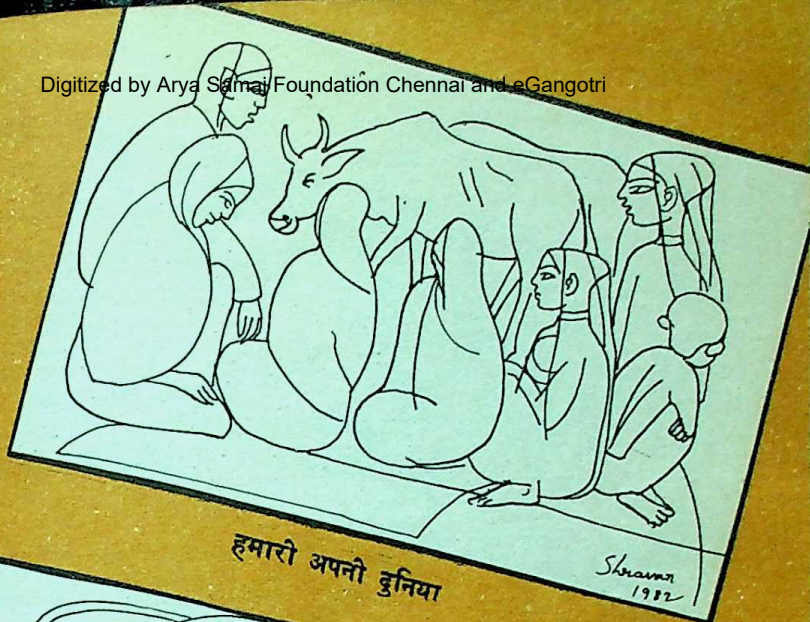 Digitized by Arya Samaj Foundation Chennai and eGangotri
हमारी अपनी दुनिया
Shravan
1982